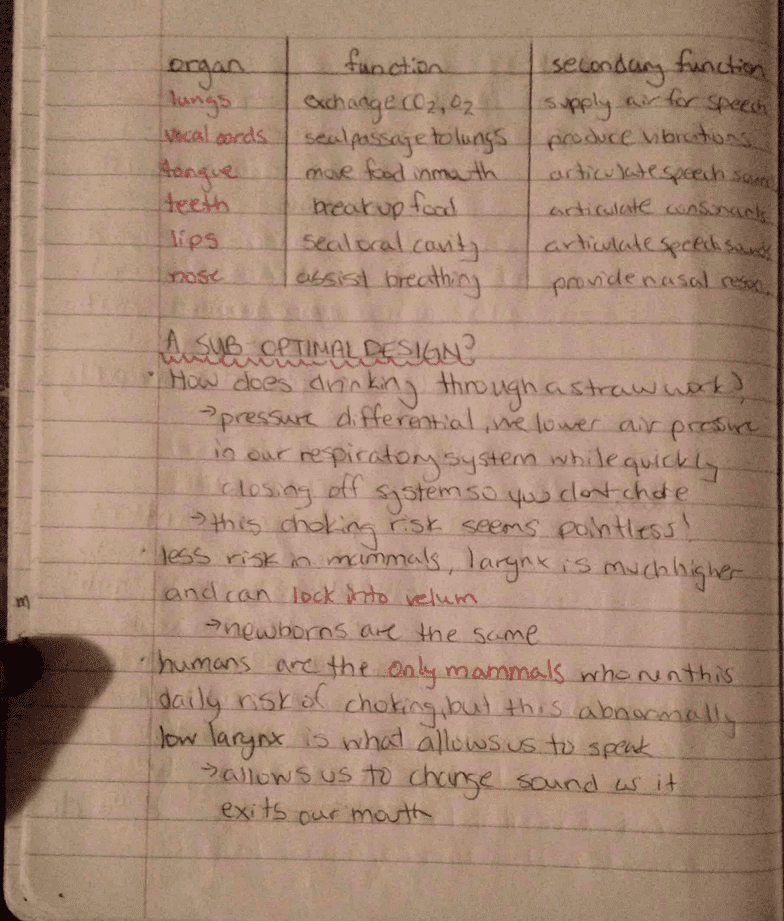 organ function secondary function
lungs exchange CO2, O2 supply air for speech
vocal cords seal passage to lungs produce vibrations
tongue move food in mouth articulate speech sound
teeth break up food articulate consonants
lips seal oral cavity articulate speech sounds
nose assist breathing provide nasal reson.
A SUB OPTIMAL DESIGN?
· How does drinking through a straw work?
→ pressure differential, we lower air pressure
in our respiratory system while quickly
closing off system so you dont choke
→ this choking risk seems pointless!
· less risk in mammals, larynx is much higher
and can lock into velum
→ newborns are the same
· humans are the only mammals who run this
daily risk of choking, but this abnormally
low larynx is what allows us to speak
→ allows us to change sound as it
exits our mouth
m